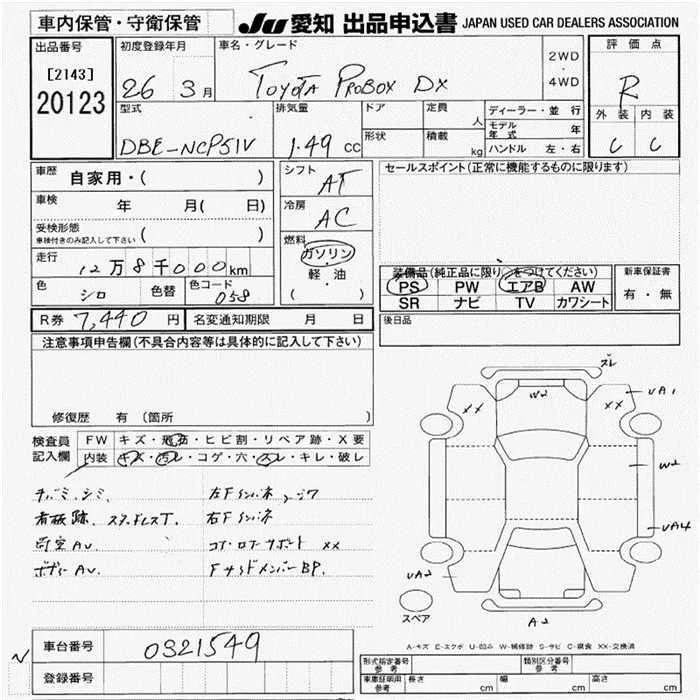 車内保管・守衛保管 JU 愛知 出品申込書 JAPAN USED CAR DEALERS ASSOCIATION
出品番号
[2143]
20123
初度登録年月
26 3月
車名・グレード
TOYOTA PROBOX DX
2WD
・
4WD
評価点
R
型式
DBE-NCP51V
排気量
1.49 cc
ドア
定員 人
形状
積載 kg
ディーラー・並行
モデル年式 年
ハンドル 左・右
外装 内装
C C
車歴
自家用・( )
車検 年 月( 日)
受検形態
車検付きのみ記入して下さい ( )
走行
12万8千000km
色 シロ 色替 色コード 058
シフト
AT
冷房
AC
燃料
ガソリン
・
軽・油
( )
セールスポイント(正常に機能するものに限ります)
装備品(純正品に限り○をつけてください)
PS PW エアB AW
SR ナビ TV カワシート
新車保証書
有・無
R券 7,440円 名変通知期限 月 日
後日品
注意事項申告欄(不具合内容等は具体的に記入して下さい)
修復歴 有 (箇所 )
検査員記入欄
FW キズ・飛石・ヒビ割・リペア跡・X要
内装 キズ・汚レ・コゲ・穴・スレ・キレ・破レ
左Fインパネ
看板跡、スタッドレスT. 右Fインパネ
AV コア・ロアーサポート XX
ボディーAV FサイドメンバーBP.
スレ
W2
XX
XX
UA1
W2
UA4
UA2
A2
スペア
A-キズ E-エクボ U-凹み W-補修跡 S-サビ C-腐食 XX-交換済
車台番号 0321549
登録番号
形式指定番号 参考
類別区分番号 参考
車庫証明用 参考 長さ cm 幅 cm 高さ cm